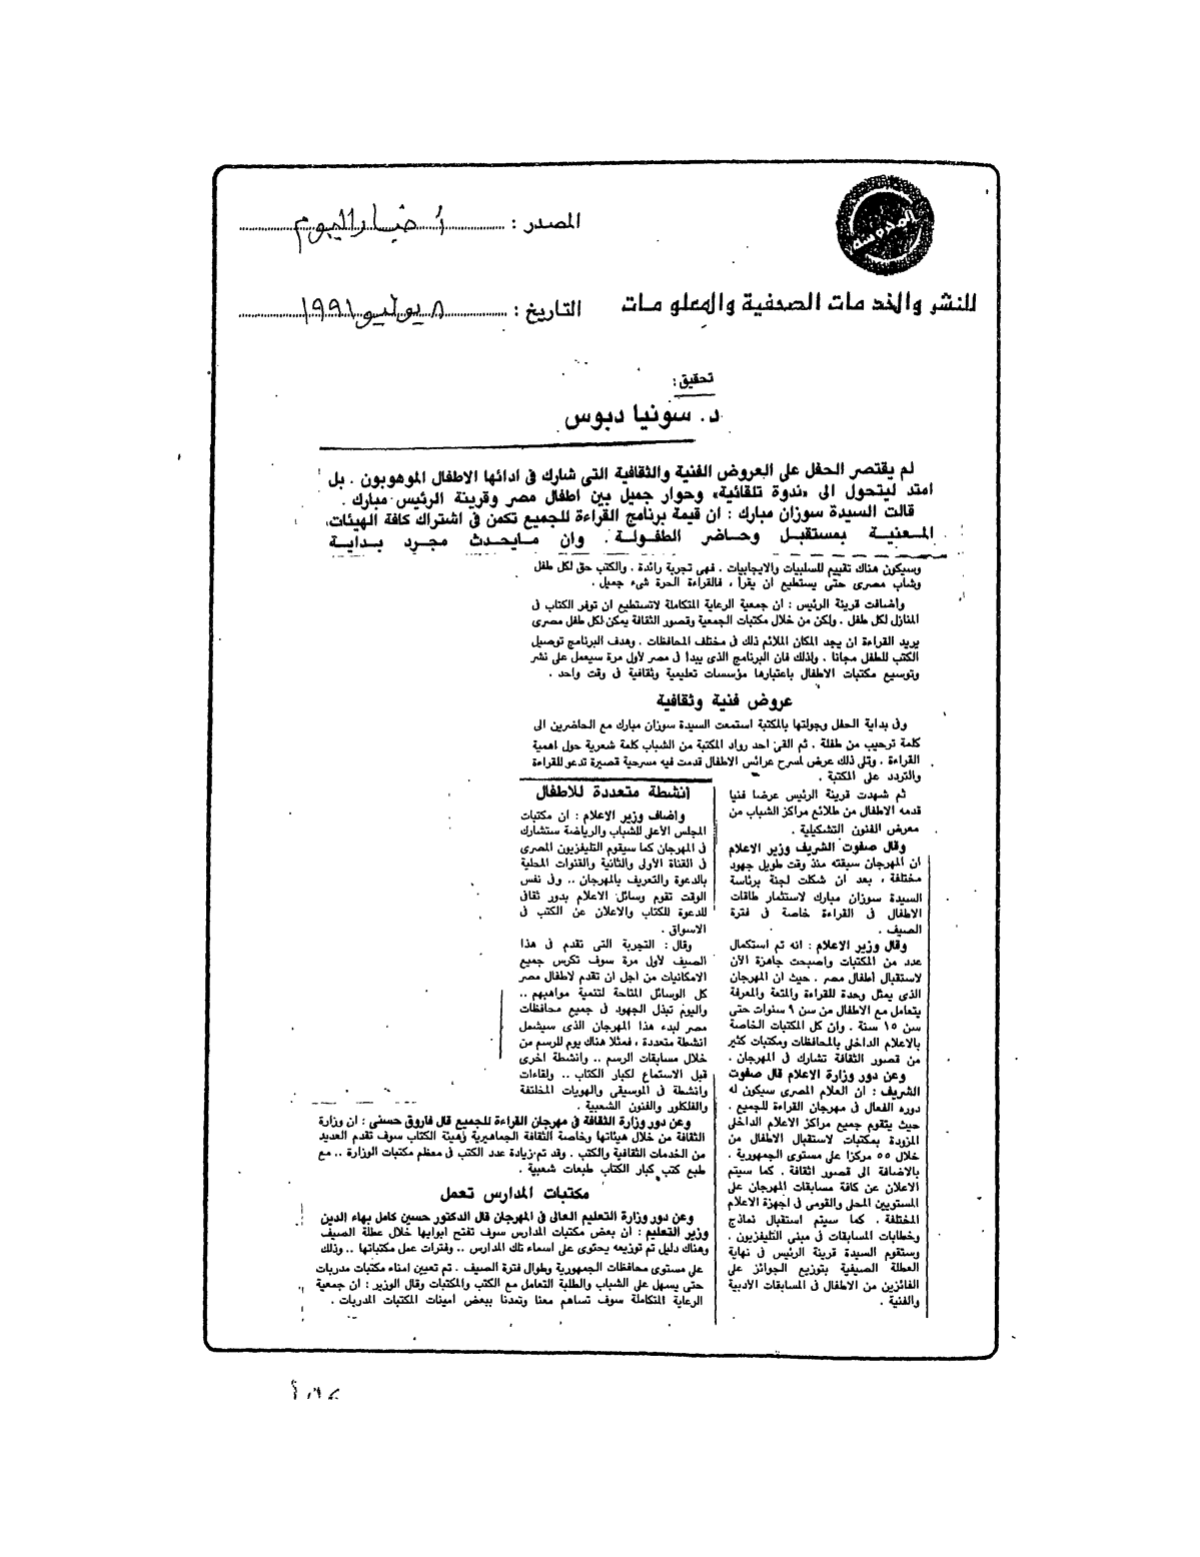 المصدر : أخبار اليوم
للنشر والخدمات الصحفية والمعلومات
التاريخ : ٨ يوليو ١٩٩١
تحقيق :
د. سونيا دبوس
لم يقتصر الحفل على العروض الفنية والثقافية التى شارك فى ادائها الاطفال الموهوبون . بل
امتد ليتحول الى «ندوة تلقائية» وحوار جميل بين اطفال مصر وقرينة الرئيس مبارك .
قالت السيدة سوزان مبارك : ان قيمة برنامج القراءة للجميع تكمن فى اشتراك كافة الهيئات
المعنية بمستقبل وحاضر الطفولة . وان مايحدث مجرد بداية
وسيكون هناك تقييم للسلبيات والايجابيات . فهى تجربة رائدة . والكتب حق لكل طفل
وشاب مصرى حتى يستطيع ان يقرأ ، فالقراءة الحرة شىء جميل .
واضافت قرينة الرئيس : ان جمعية الرعاية المتكاملة لاتستطيع ان توفر الكتاب فى
المنازل لكل طفل . ولكن من خلال مكتبات الجمعية وقصور الثقافة يمكن لكل طفل مصرى
يريد القراءة ان يجد المكان الملائم ذلك فى مختلف المحافظات . وهدف البرنامج توصيل
الكتب للطفل مجانا . ولذلك فان البرنامج الذى يبدأ فى مصر لأول مرة سيعمل على نشر
وتوسيع مكتبات الاطفال باعتبارها مؤسسات تعليمية وثقافية فى وقت واحد .
عروض فنية وثقافية
وفى بداية الحفل وجولتها بالمكتبة استمعت السيدة سوزان مبارك مع الحاضرين الى
كلمة ترحيب من طفلة . ثم القى احد رواد المكتبة من الشباب كلمة شعرية حول اهمية
القراءة . وتلى ذلك عرض لمسرح عرائس الاطفال قدمت فيه مسرحية قصيرة تدعو للقراءة
والتردد على المكتبة .
ثم شهدت قرينة الرئيس عرضا فنيا
قدمه الاطفال من طلائع مراكز الشباب من
معرض الفنون التشكيلية .
وقال صفوت الشريف وزير الاعلام
ان المهرجان سبقته منذ وقت طويل جهود
مختلفة ، بعد ان شكلت لجنة برئاسة
السيدة سوزان مبارك لاستثمار طاقات
الاطفال فى القراءة خاصة فى فترة
الصيف .
وقال وزير الاعلام : انه تم استكمال
عدد من المكتبات واصبحت جاهزة الآن
لاستقبال اطفال مصر . حيث ان المهرجان
الذى يمثل وحدة للقراءة والمتعة والمعرفة
يتعامل مع الاطفال من سن ٩ سنوات حتى
سن ١٥ سنة . وان كل المكتبات الخاصة
بالاعلام الداخلى بالمحافظات ومكتبات كثير
من قصور الثقافة تشارك فى المهرجان .
وعن دور وزارة الاعلام قال صفوت
الشريف : ان العلام المصرى سيكون له
دوره الفعال فى مهرجان القراءة للجميع .
حيث يتقوم جميع مراكز الاعلام الداخلى
المزودة بمكتبات لاستقبال الاطفال من
خلال ٥٥ مركزا على مستوى الجمهورية .
بالاضافة الى قصور اثقافة . كما سيتم
الاعلان عن كافة مسابقات المهرجان على
المستويين المحلى والقومى فى اجهزة الاعلام
المختلفة . كما سيتم استقبال نماذج
وخطابات المسابقات فى مبنى التليفزيون .
وستقوم السيدة قرينة الرئيس فى نهاية
العطلة الصيفية بتوزيع الجوائز على
الفائزين من الاطفال فى المسابقات الأدبية
والفنية .
أنشطة متعددة للاطفال
واضاف وزير الاعلام : ان مكتبات
المجلس الاعلى للشباب والرياضة ستشارك
فى المهرجان كما سيقوم التليفزيون المصرى
فى القناة الأولى والثانية والقنوات المحلية
بالدعوة والتعريف بالمهرجان .. وفى نفس
الوقت تقوم وسائل الاعلام بدور ثقافى
للدعوة للكتاب والاعلان عن الكتب فى
الاسواق .
وقال : التجربة التى تقدم فى هذا
الصيف لأول مرة سوف تكرس جميع
الامكانيات من اجل ان تقدم لاطفال مصر
كل الوسائل المتاحة لتنمية مواهبهم ..
واليوم تبذل الجهود فى جميع محافظات
مصر لبدء هذا المهرجان الذى سيشمل
انشطة متعددة ، فمثلا هناك يوم للرسم من
خلال مسابقات الرسم .. وانشطة اخرى
قبل الاستماع لكبار الكتاب .. ولقاءات
وانشطة فى الموسيقى والهويات المختلفة
والفلكلور والفنون الشعبية .
وعن دور وزارة الثقافة فى مهرجان القراءة للجميع قال فاروق حسنى : ان وزارة
الثقافة من خلال هيئاتها وخاصة الثقافة الجماهيرية وهيئة الكتاب سوف تقدم العديد
من الخدمات الثقافية والكتب . وقد تم زيادة عدد الكتب فى معظم مكتبات الوزارة .. مع
طبع كتب كبار الكتاب طبعات شعبية .
مكتبات المدارس تعمل
وعن دور وزارة التعليم العالى فى المهرجان قال الدكتور حسين كامل بهاء الدين
وزير التعليم : ان بعض مكتبات المدارس سوف تفتح ابوابها خلال عطلة الصيف
وهناك دليل تم توزيعه يحتوى على اسماء تلك المدارس .. وفترات عمل مكتباتها .. وذلك
على مستوى محافظات الجمهورية وطوال فترة الصيف . تم تعيين امناء مكتبات مدربات
حتى يسهل على الشباب والطلبة التعامل مع الكتب والمكتبات وقال الوزير : ان جمعية
الرعاية المتكاملة سوف تساهم معنا وتمدنا ببعض امينات المكتبات المدربات .